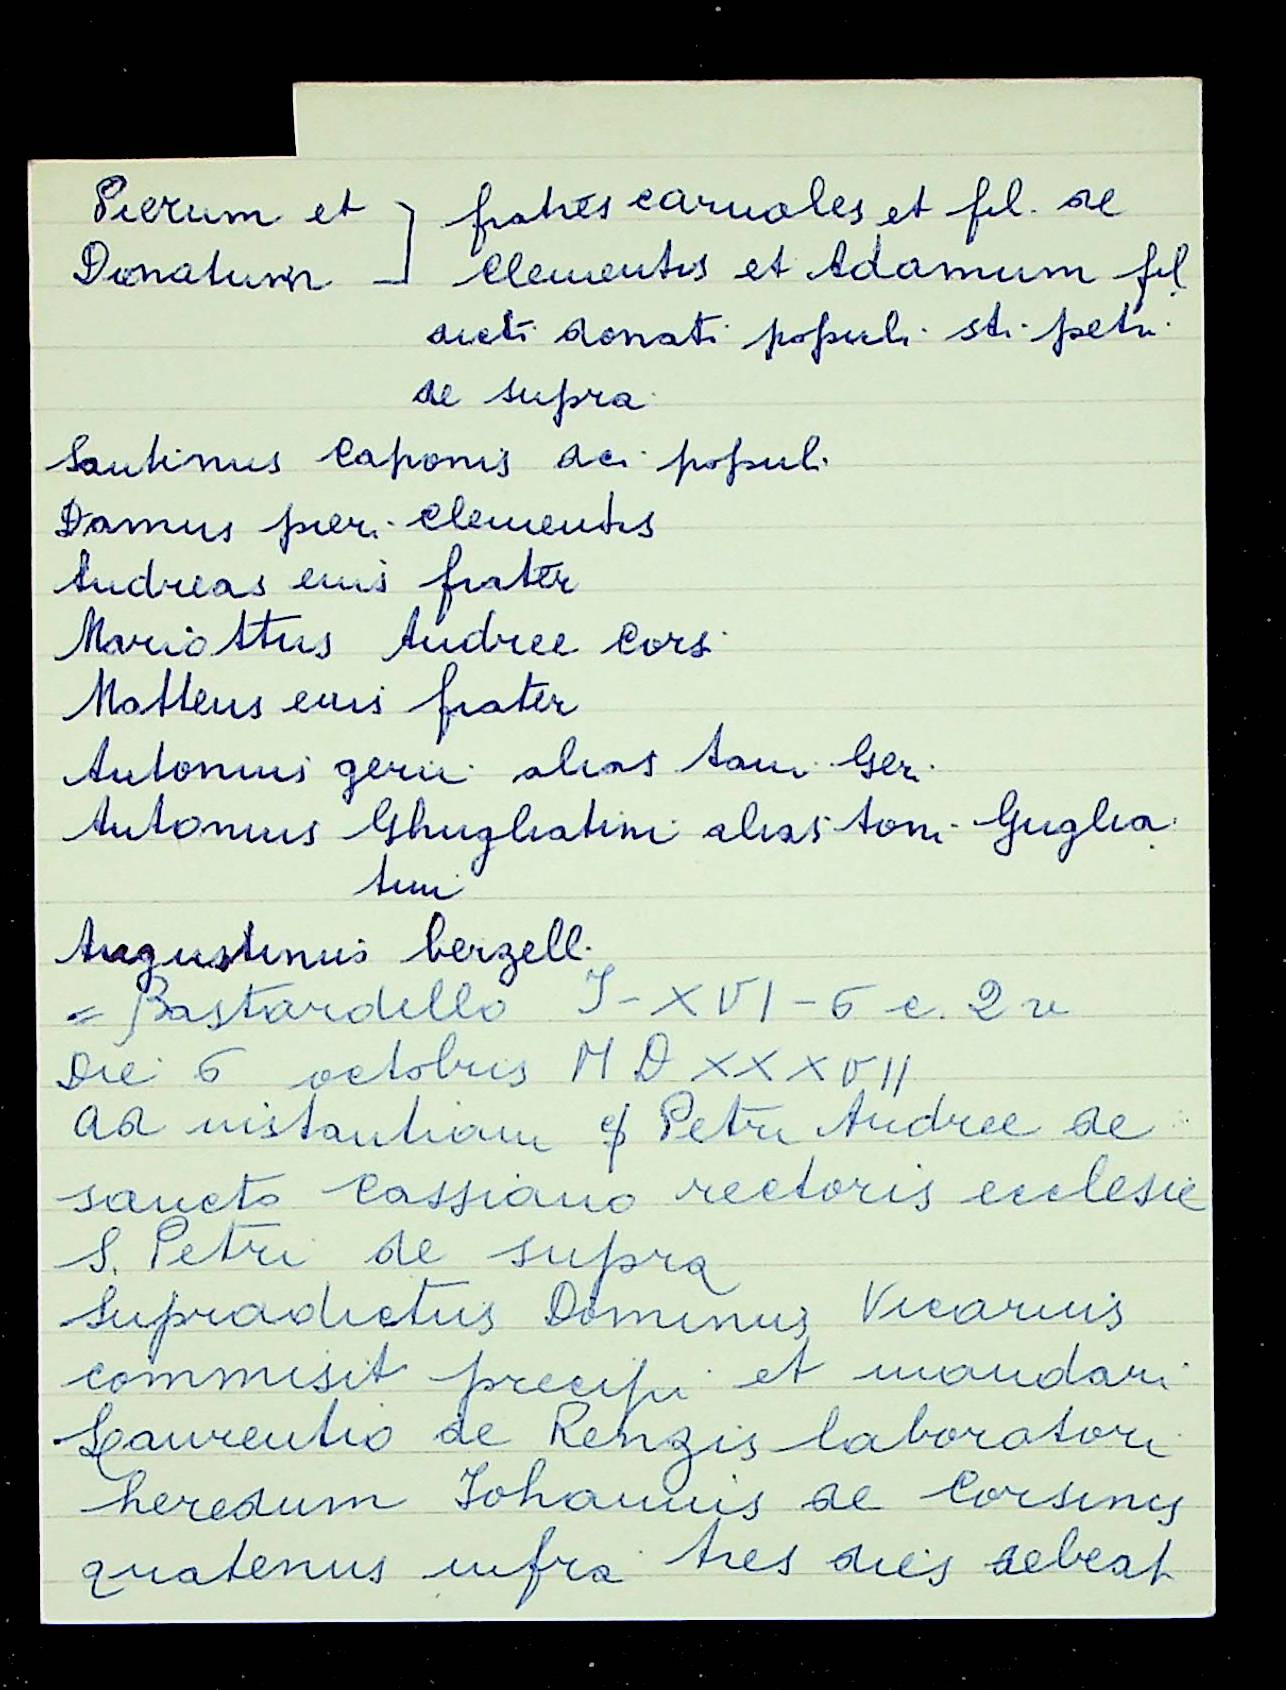 Pierum et ] fratres carnales et fil. de
Donatum ] Clementis et Adamum fil.
dicti donati populi sti. petri
de supra
Santinus Caponis dci populi
Damus pieri Clementis
Andreas eius frater
Mariottus Andree Corsi
Matteus eius frater
Antonius gerii alias Toni Geri
Antonius Ghugliatini alias toni Guglia
tini
Augustinus berzell.
= Bastardello I-XVI-6 c. 2 v
Die 6 octobris MDXXXVII
Ad instantiam Petri Andree de
sancto Cassiano rectoris ecclesie
S. Petri de supra
Supradictus Dominus Vicarius
commisit precipi et mandari
Laurentio de Renzis laboratori
heredum Johannis de Corsinis
quatenus infra tres dies debeat